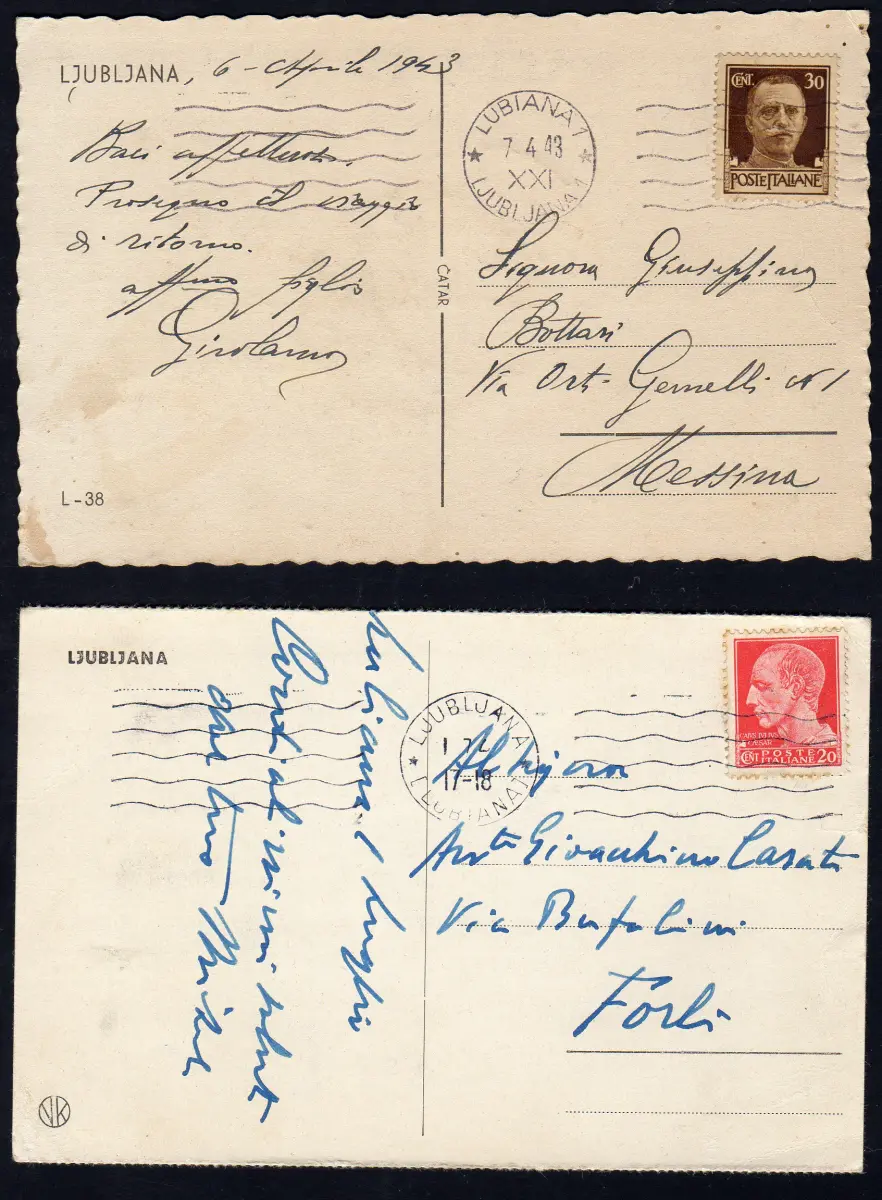 LJUBLJANA, 6 - Aprile 1943
Baci affettuosi.
Proseguo il viaggio
di ritorno.
affmo figlio
Girolamo
L-38
ČATAR
LUBIANA 1
7 4 43
XXI
LJUBLJANA 1
CENT. 30
POSTE ITALIANE
Signora Giuseppina
Bottari
Via Orti Gemelli N 1
Messina
LJUBLJANA
Lubiana 1 luglio
Cordialissimi saluti
dal tuo
VK
LJUBLJANA 1
17-18
LUBIANA 1
CAESAR
CENT POSTE 20
ITALIANE
Al Signor
Giovacchino Casati
Via Bufalini
Forlì